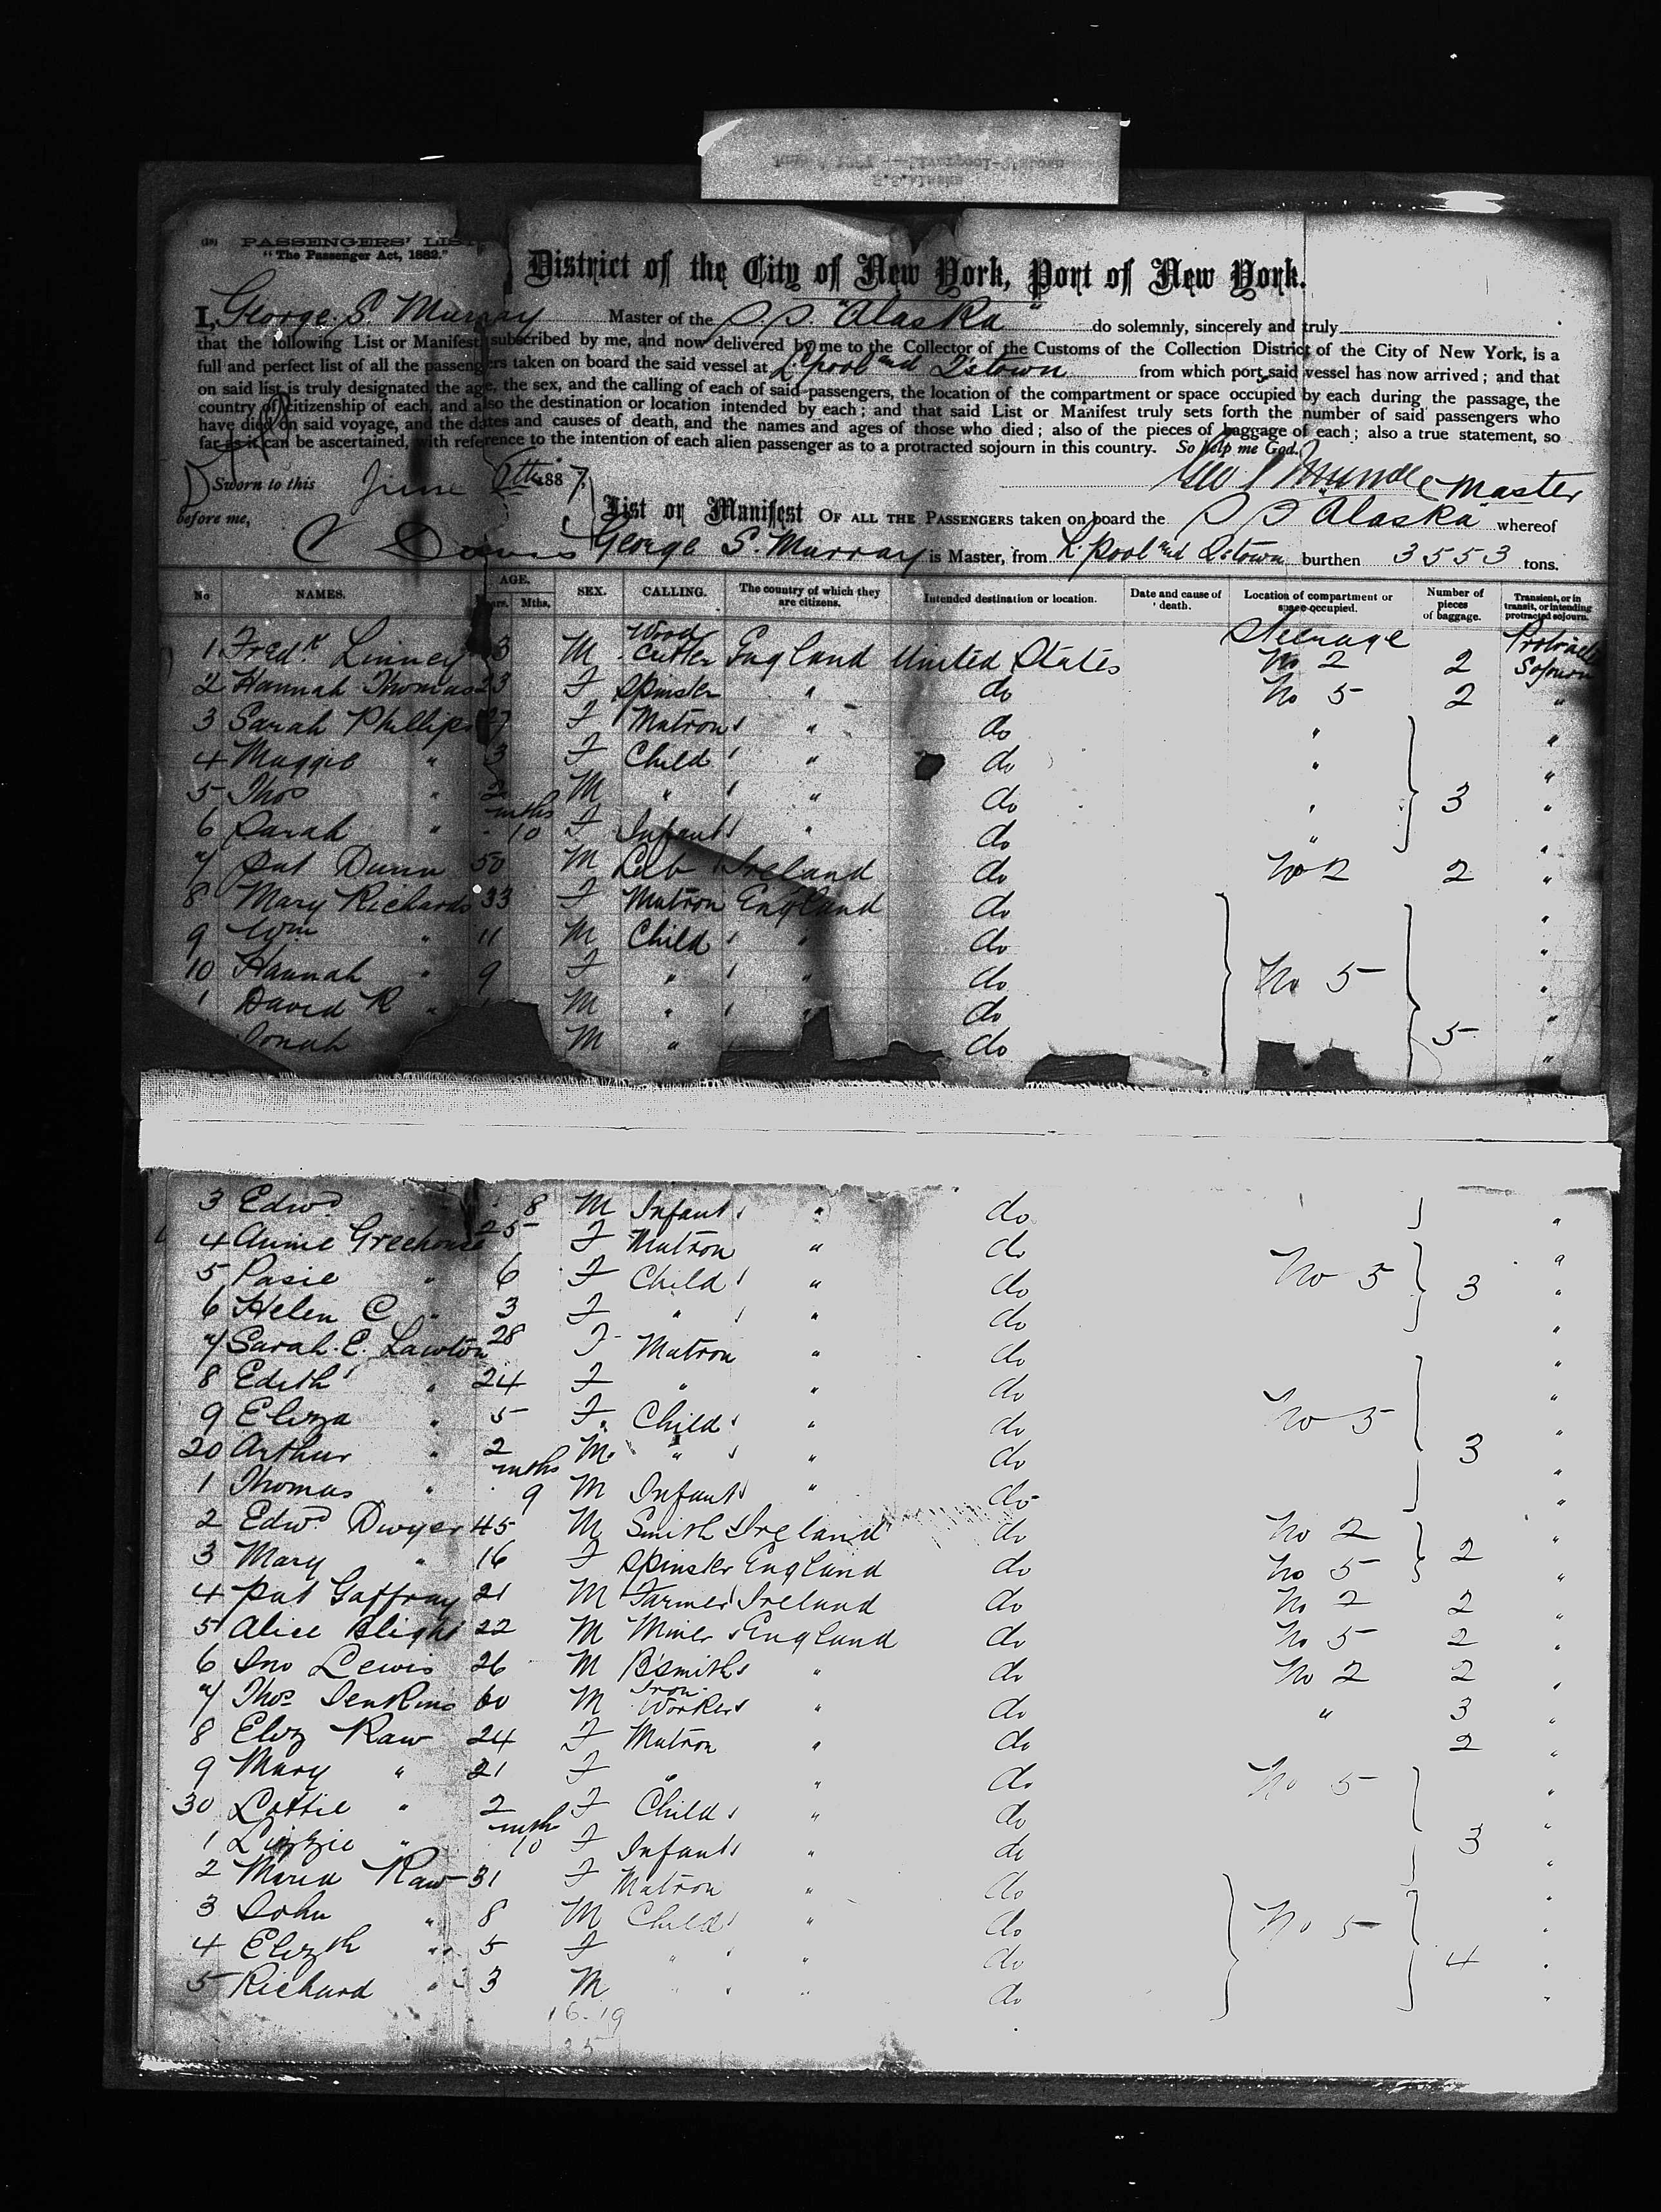 (18) PASSENGERS' LIST
"The Passenger Act, 1882."
District of the City of New York, Port of New York.
I, George S. Murray Master of the S S. "Alaska" do solemnly, sincerely and truly
that the following List or Manifest, subscribed by me, and now delivered by me to the Collector of the Customs of the Collection District of the City of New York, is a
full and perfect list of all the passengers taken on board the said vessel at L'pool and Q'stown from which port said vessel has now arrived; and that
on said list is truly designated the age, the sex, and the calling of each of said passengers, the location of the compartment or space occupied by each during the passage, the
country of citizenship of each, and also the destination or location intended by each; and that said List or Manifest truly sets forth the number of said passengers who
have died on said voyage, and the dates and causes of death, and the names and ages of those who died; also of the pieces of baggage of each; also a true statement, so
far as it can be ascertained, with reference to the intention of each alien passenger as to a protracted sojourn in this country. So help me God.
Sworn to this June 6th 1887
before me, Master
List or Manifest OF ALL THE PASSENGERS taken on board the S S "Alaska" whereof
C Davis George S. Murray is Master, from L'pool and Q'stown burthen 3553 tons.
No NAMES. AGE. Mths. SEX. CALLING. The country of which they are citizens. Intended destination or location. Date and cause of death. Location of compartment or space occupied. Number of pieces of baggage. Transient, or in transit, or intending protracted sojourn.
1 Fredk Linney 3 M Wood Cutter England United States Steerage No 2 2 Protracted Sojourn
2 Hannah Thomas 23 F Spinster " do No 5 2 "
3 Sarah Phillips 7 F Matron " do " "
4 Maggie " 3 F Child " do " "
5 Thos " 2 M " " do " 3 "
6 Sarah " mths 10 F Infant " do " "
7 Pat Dunn 50 M Lab Ireland do No 2 2 "
8 Mary Richards 33 F Matron England do "
9 Wm " 11 M Child " do "
10 Hannah " 9 F " " do No 5 "
1 David R " M " " do "
Jonah M " do 5 "
3 Edwd 8 M Infant " do "
4 Annie Greehouse 25 F Matron " do "
5 Pasie " 6 F Child " do No 5 3 "
6 Helen C " 3 F " " do "
7 Sarah E. Lawton 28 F Matron " do "
8 Edith " 24 F " " do "
9 Eliza " 5 F Child " do No 5 "
20 Arthur " 2 M " " do 3 "
1 Thomas " mths 9 M Infant " do "
2 Edwd Dwyer 45 M Smith Ireland do No 2 2 "
3 Mary " 16 F Spinster England do No 5 "
4 Pat Gaffray 21 M Farmer Ireland do No 2 2 "
5 Alice Bligh 22 M Miner England do No 5 2 "
6 Jno Lewis 26 M B'smith " do No 2 2 "
7 Thos Jenkins 60 M Iron Worker " do " 3 "
8 Eliz Raw 24 F Matron " do 2 "
9 Mary " 21 F " " do No 5 "
30 Lottie " 2 F Child " do "
1 Lizzie " mth 10 F Infant " do 3 "
2 Maria Raw 31 F Matron " do "
3 John " 8 M Child " do No 5 "
4 Elizth " 5 F " " do 4 "
5 Richard " 3 M " " do "
16-19
35